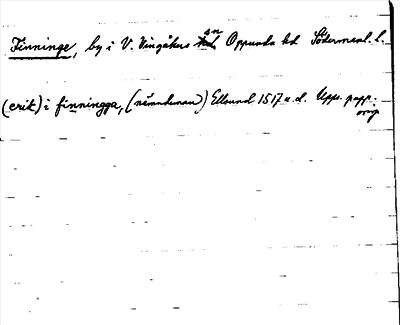 Finninge, by i V. Vingåkers sn Oppunda hd Södermanl. l.
(erik) i finningga, (nämndeman) Ellsund 1517 u.d. Upps. papp.
orig